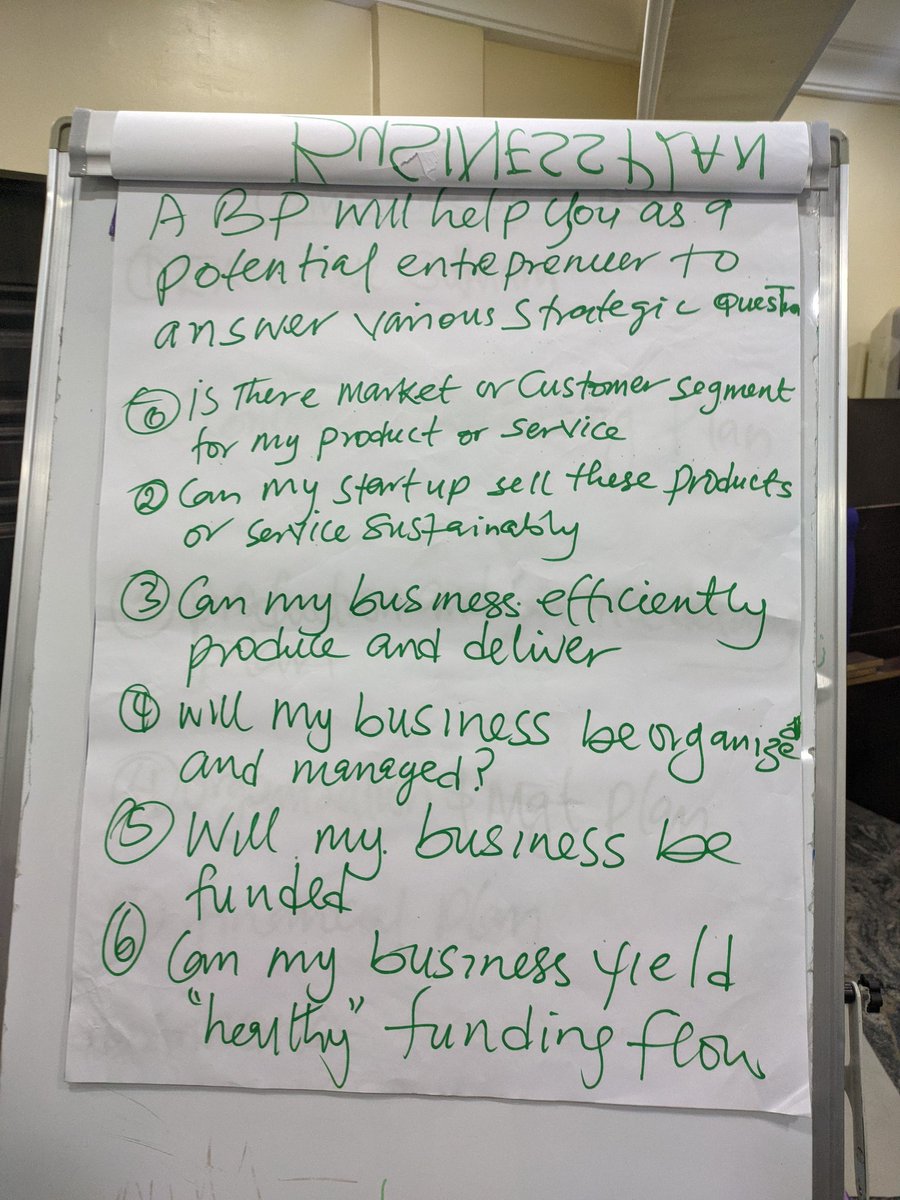 BUSINESS PLAN
A BP will help you as a
potential entreprenuer to
answer various strategic Questn
① is There market or Customer segment
for my product or service
② Can my start up sell these products
or service sustainably
③ Can my business efficiently
produce and deliver
④ will my business be organized
and managed?
⑤ Will my business be
funded
⑥ Can my business yield
"healthy" funding flow
Mgt Plan